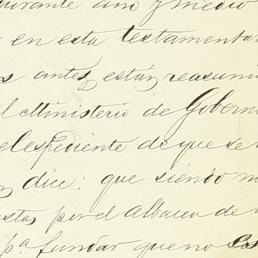 durante uno y medio
en esta testamentar
s antes, están reasumi
l Ministerio de Gobern
el Espediente de que se
dice: que siendo m
stas por el albacea de
pª fundar que no es